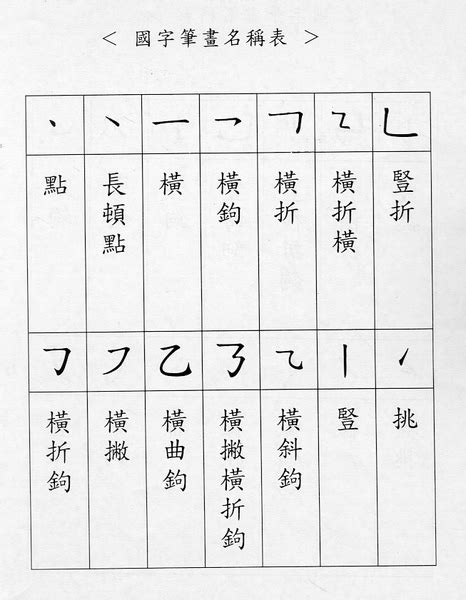 < 國字筆畫名稱表 >
㇔ ㇏ ㇐ ㇖ ㇕ ㇅ ㇗
點 長頓點 橫 橫鉤 橫折 橫折橫 豎折
㇆ ㇇ ㇠ ㇌ ㇈ ㇑ ㇀
橫折鉤 橫撇 橫曲鉤 橫撇橫折鉤 橫斜鉤 豎 挑